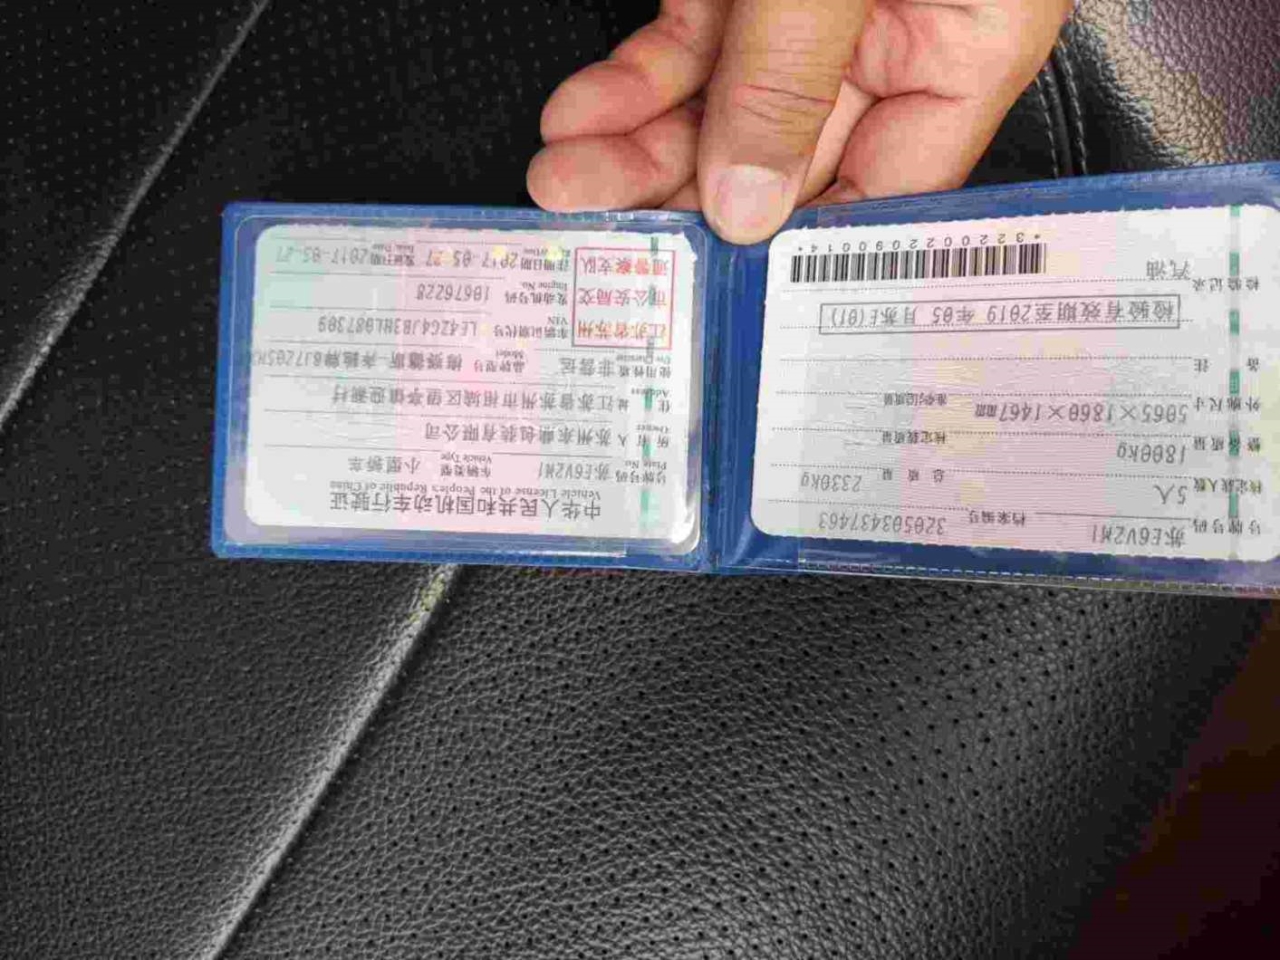 中华人民共和国机动车行驶证
Vehicle License of the People's Republic of China
号牌号码 苏E6V2M1 车辆类型 小型轿车
Plate No. Vehicle Type
所有人 苏州 包装有限公司
Owner
住址 江苏省苏州市相城区望亭镇迎湖村
Address
使用性质 非营运 品牌型号 梅赛德斯-奔驰牌
Use Character Model
江苏省苏州
市公安局交
通警察支队
车辆识别代号 LE4ZG4JB3HL087309
VIN
发动机号码 10676228
Engine No.
注册日期 2017-05-27 发证日期 2017-05-27
Register Date Issue Date
号牌号码 苏E6V2M1 档案编号 320503437463
核定载人数 5人 总质量 2330kg
整备质量 1800kg 核定载质量
外廓尺寸 5065×1860×1467mm 准牵引总质量
备注
检验有效期至2019年05月苏E(01)
检验记录
汽油
*3220022090014*